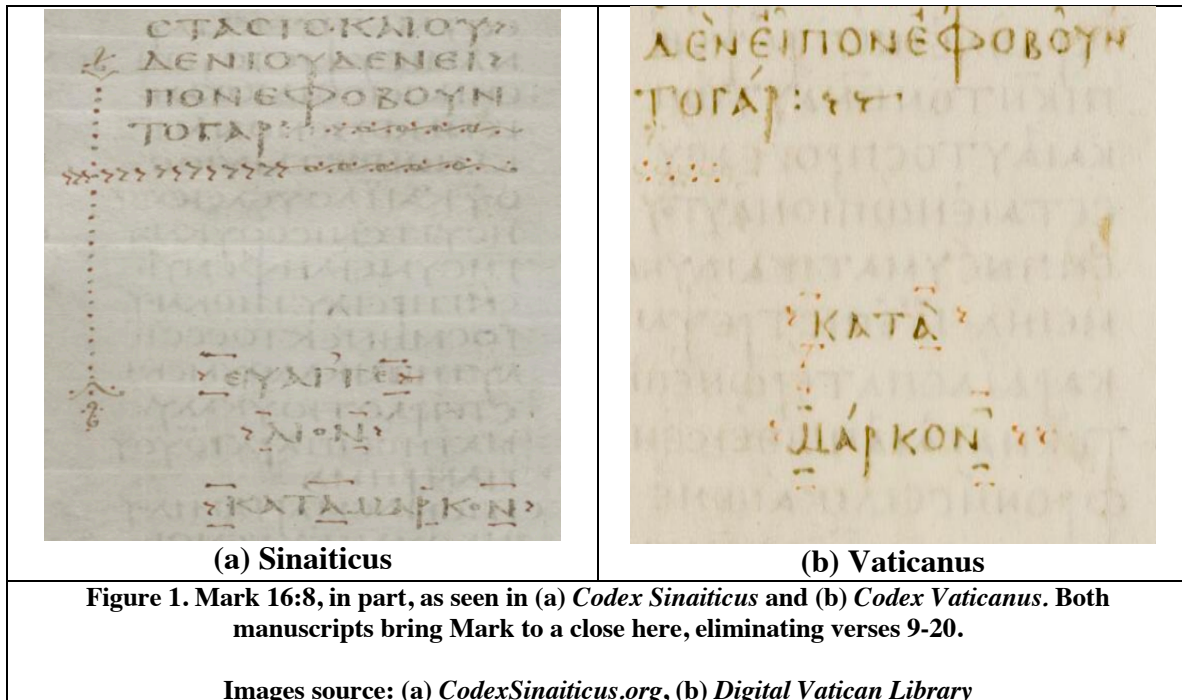 ϹΤΑϹΙϹΚΑΙΟΥ
ΔΕΝΙΟΥΔΕΝΕΙ
ΠΟΝΕΦΟΒΟΥΝ
ΤΟΓΑΡ:
ΕΥΑΓΓΕ
ΛΙΟΝ
ΚΑΤΑΜΑΡΚΟΝ
(a) Sinaiticus
ΔΕΝΕΙΠΟΝΕΦΟΒΟΥΝ
ΤΟΓΑΡ:
ΚΑΤΑ
ΜΑΡΚΟΝ
(b) Vaticanus
Figure 1. Mark 16:8, in part, as seen in (a) Codex Sinaiticus and (b) Codex Vaticanus. Both
manuscripts bring Mark to a close here, eliminating verses 9-20.
Images source: (a) CodexSinaiticus.org, (b) Digital Vatican Library